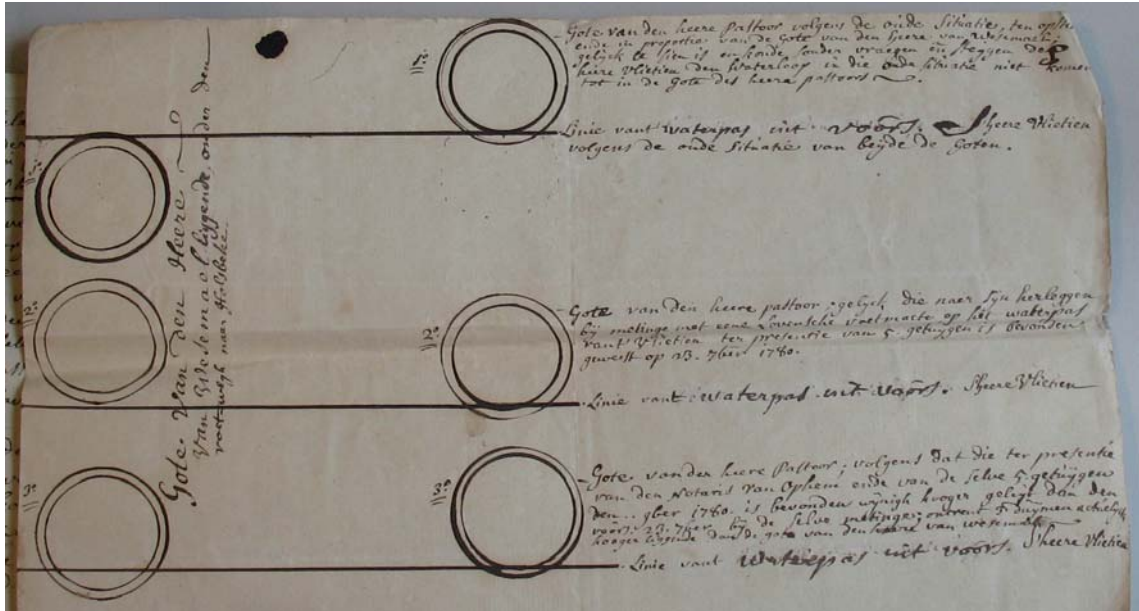 Gote van den heere Pastoor volgens de oude Situatie, ten opsi
ende in proportie van de Gote van den heere van Wesemael
gelyck te sien is en konde sonder vraegen en seggen des
heere Vlietien den Waterloop in die oude situatie niet komen
tot in de Gote des heere pastoors
1°
Linie vant waterpas uit voors. Sheere Vlietien
volgens de oude Situatie van beyde de Goten.
1°
Gote Van den Heere
Van Wesemael liggende onder den
voet-wegh naer Holsbeke
2°
2°
Gote van den heere pastoor, gelyck die naer syn herleggen
bij metinge met eene Lovensche voetmaete op het waterpas
vant Vlietien ter presentie van 5. getuygen is bevonden
geweest op 23. 7ber 1780.
Linie vant waterpas uit voors. Sheere Vlietien
3°
3°
Gote van den heere Pastoor, volgens dat die ter presentie
van den Notaris Van Ophem ende van de selve 5. getuygen
den .. 9ber 1780. is bevonden wynigh hooger gelegt dan den
voors. 23. 7ber bij de selve metinge, ontrent duymen actuelyck
hooger liggende dan de gote van den heere van wesemael
Linie vant waterpas uit voors. Sheere Vlietien